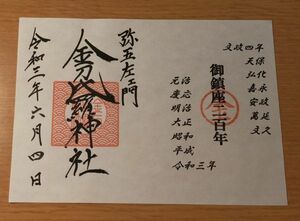 文政四年
天保
弘化
嘉永
安政
萬延
文久
御鎮座二百年
元治
慶応
明治
大正
昭和
平成
令和三年
弥五左エ門
金刀比羅神社
令和三年六月四日